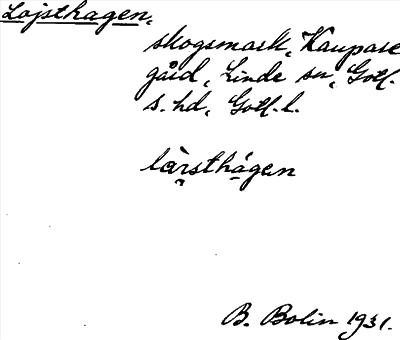 Lojsthagen,
skogsmark, Kaupare
gård, Linde sn, Gotl.
s. hd, Gotl. l.
B. Bolin 1931.